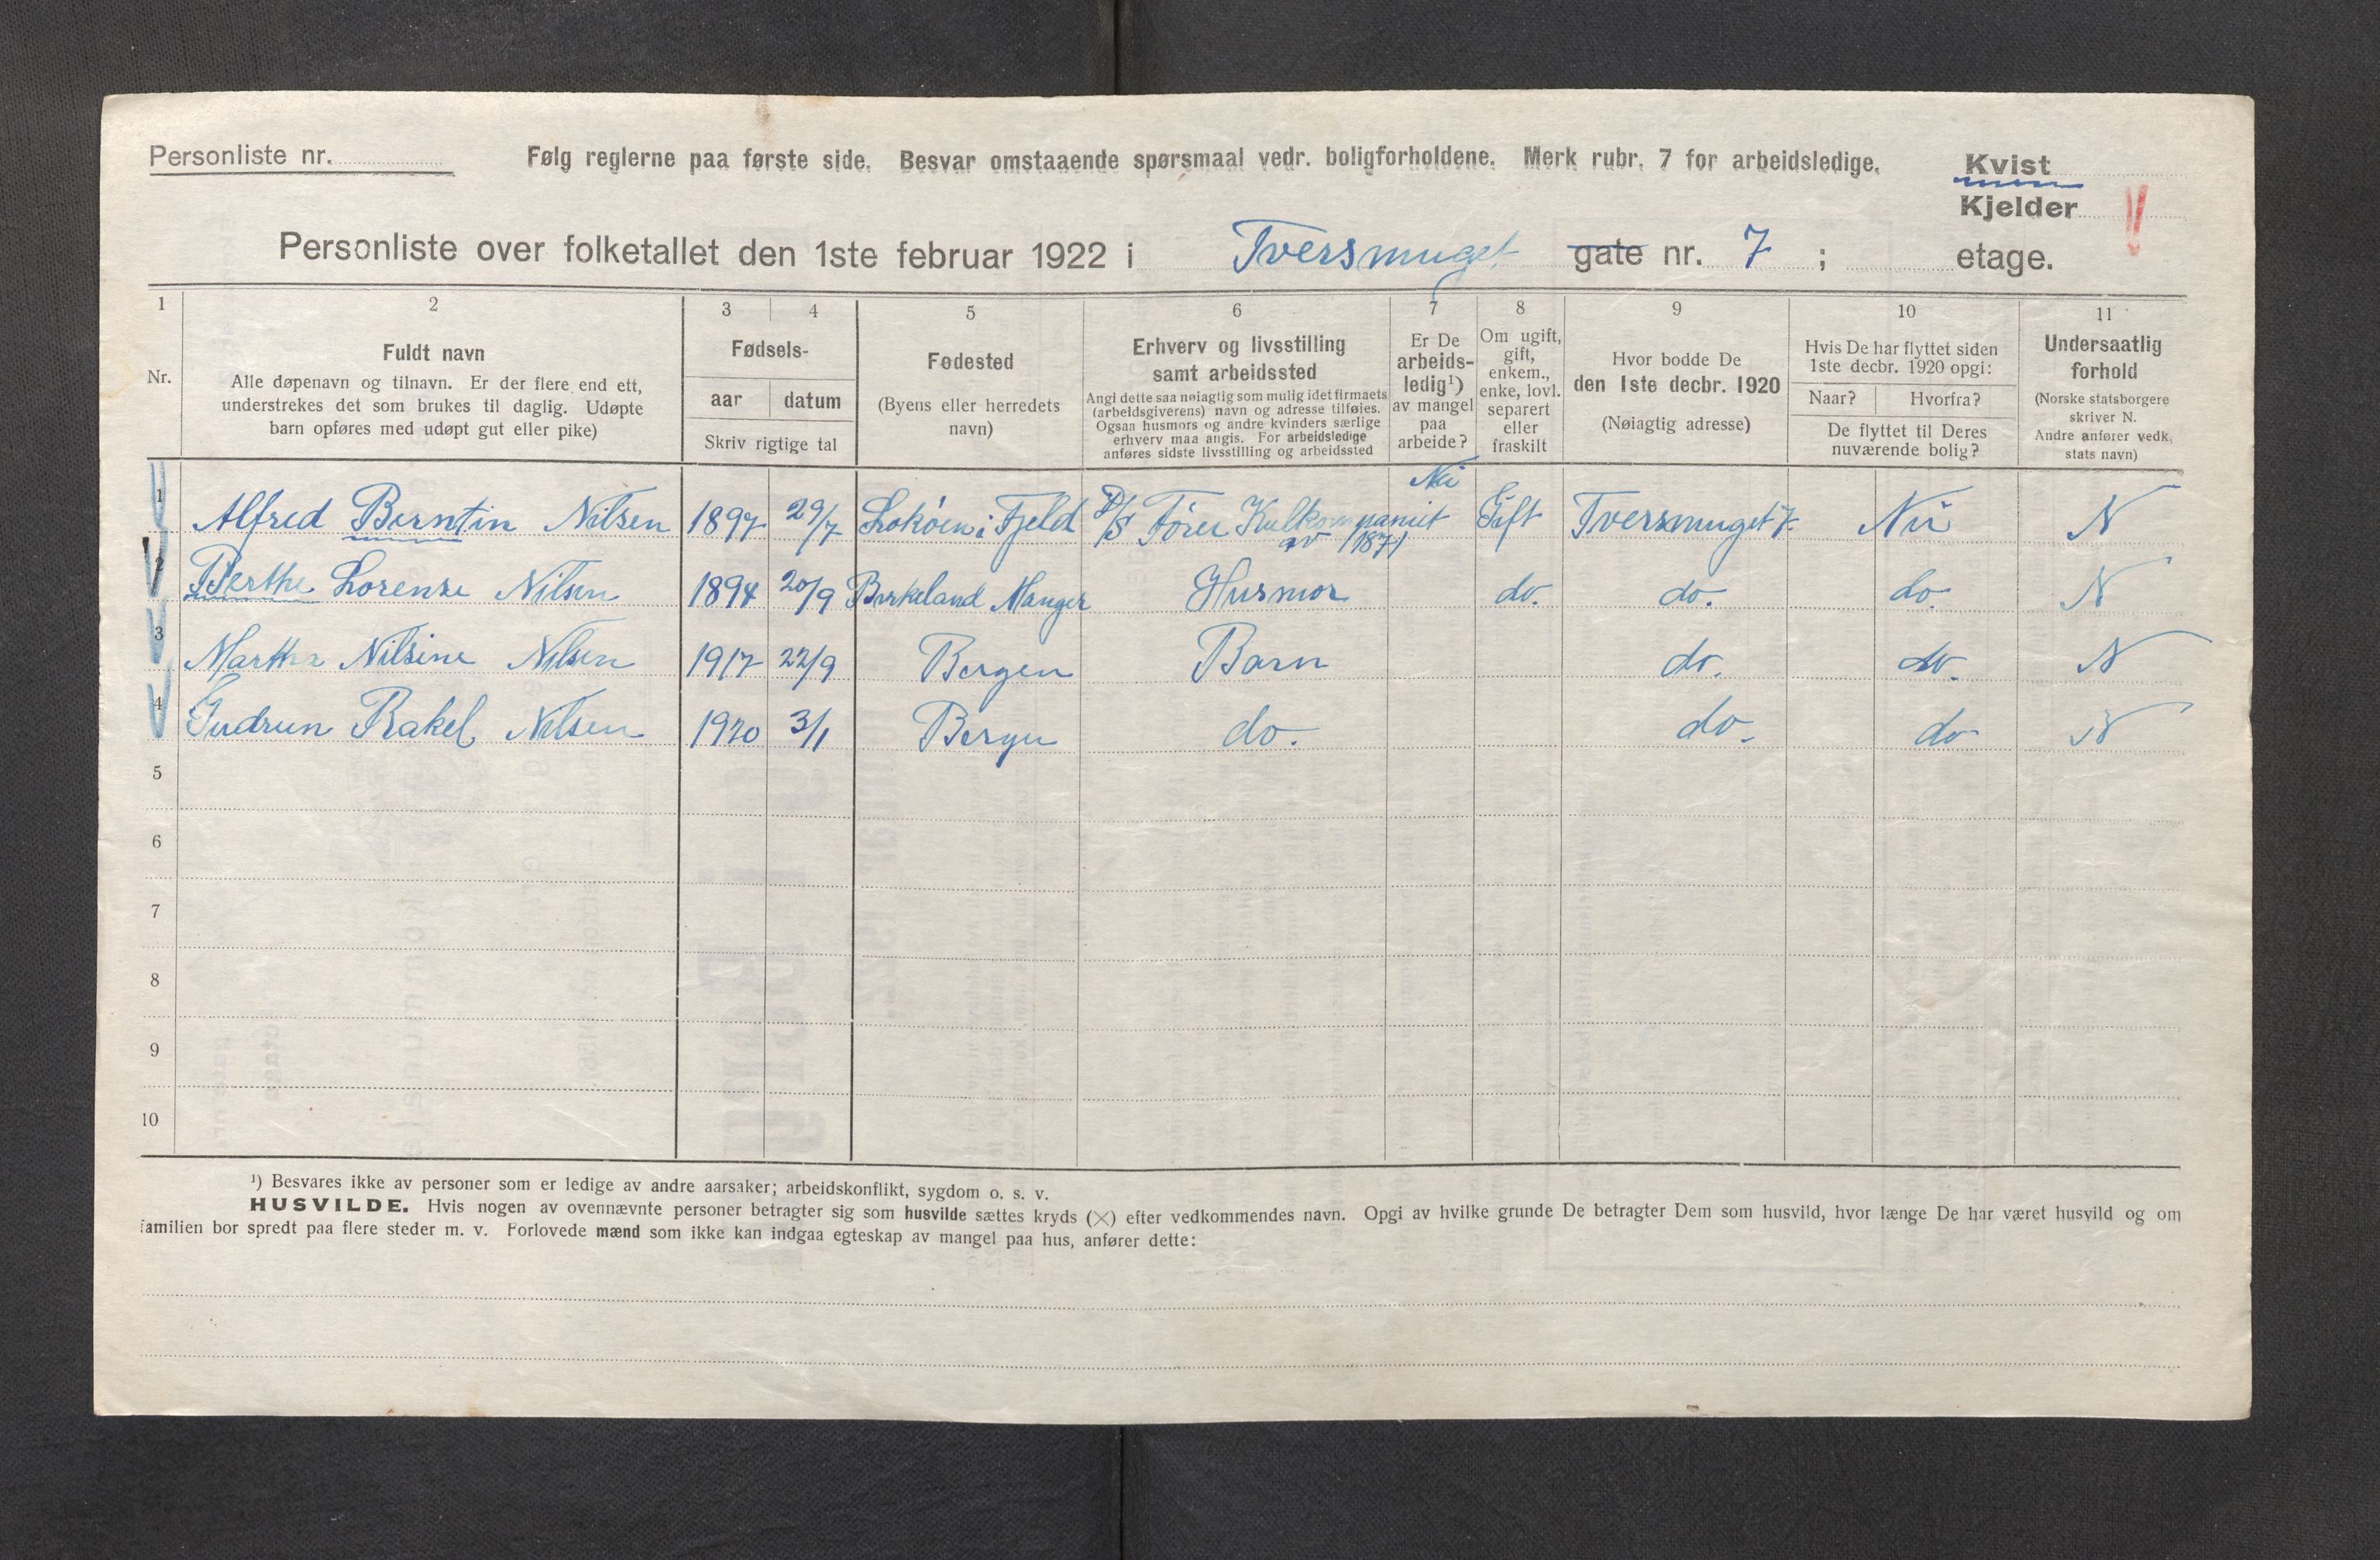 Personliste nr.
Følg reglerne paa første side. Besvar omstaaende spørsmaal vedr. boligforholdene. Merk rubr. 7 for arbeidsledige.
Kvist
Kjelder
Personliste over folketallet den 1ste februar 1922 i Tversmuget gate nr. 7 ; etage.
1 2 3 4 5 6 7 8 9 10 11
Nr.
Fuldt navn
Alle døpenavn og tilnavn. Er der flere end ett,
understrekes det som brukes til daglig. Udøpte
barn opføres med udøpt gut eller pike)
Fødsels-
aar datum
Skriv rigtige tal
Fødested
(Byens eller herredets
navn)
Erhverv og livsstilling
samt arbeidssted
Angi dette saa nøiagtig som mulig idet firmaets
(arbeidsgiverens) navn og adresse tilføies.
Ogsaa husmors og andre kvinders særlige
erhverv maa angis. For arbeidsledige
anføres sidste livsstilling og arbeidssted
Er De
arbeids-
ledig¹)
av mangel
paa
arbeide?
Om ugift,
gift,
enkem.,
enke, lovl.
separert
eller
fraskilt
Hvor bodde De
den 1ste decbr. 1920
(Nøiagtig adresse)
Hvis De har flyttet siden
1ste decbr. 1920 opgi:
Naar? Hvorfra?
De flyttet til Deres
nuværende bolig?
Undersaatlig
forhold
(Norske statsborgere
skriver N.
Andre anfører vedk.
stats navn)
1 Alfred Berntin Nilsen 1897 29/7 Lokøen i Fjeld Nei Gift Tversmuget 7 Nei N
2 Berthe Lorense Nilsen 1894 20/9 Birkeland Manger Husmor do. do. do. N
3 Martha Nilsine Nilsen 1917 22/9 Bergen Barn do. do. N
4 Gudrun Rakel Nilsen 1920 3/1 Bergen do. do. do N
5
6
7
8
9
10
¹) Besvares ikke av personer som er ledige av andre aarsaker; arbeidskonflikt, sygdom o. s. v.
HUSVILDE. Hvis nogen av ovennævnte personer betragter sig som husvilde sættes kryds (×) efter vedkommendes navn. Opgi av hvilke grunde De betragter Dem som husvild, hvor længe De har været husvild og om
familien bor spredt paa flere steder m. v. Forlovede mænd som ikke kan indgaa egteskap av mangel paa hus, anfører dette: